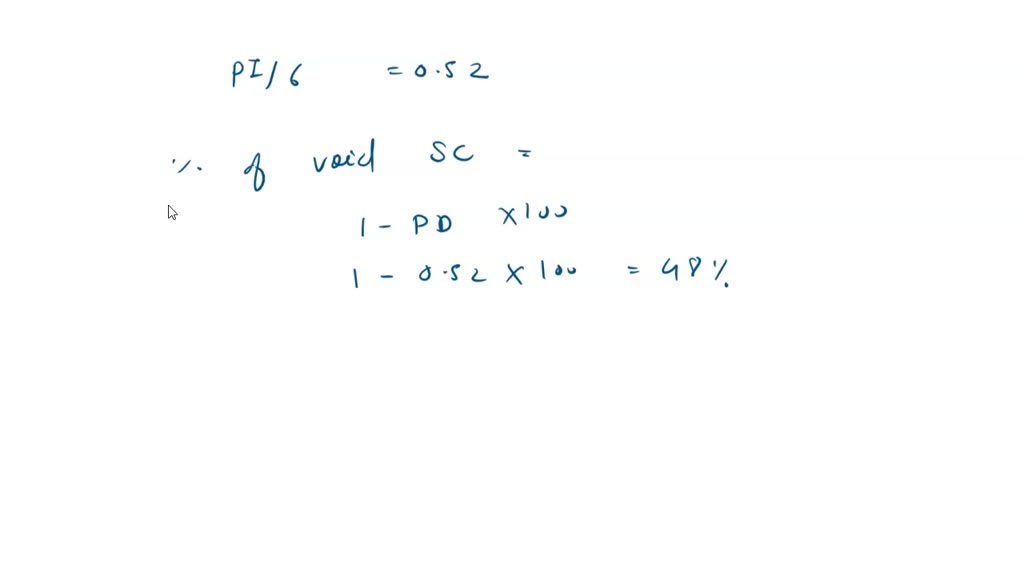 PI/6 = 0.52
% of void SC =
1 - PD X100
1 - 0.52 X 100 = 48%